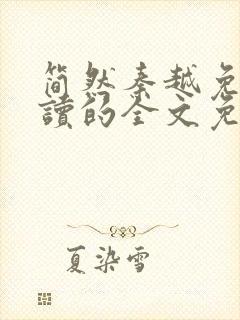 简然秦越免
讀的全文免
夏染雪